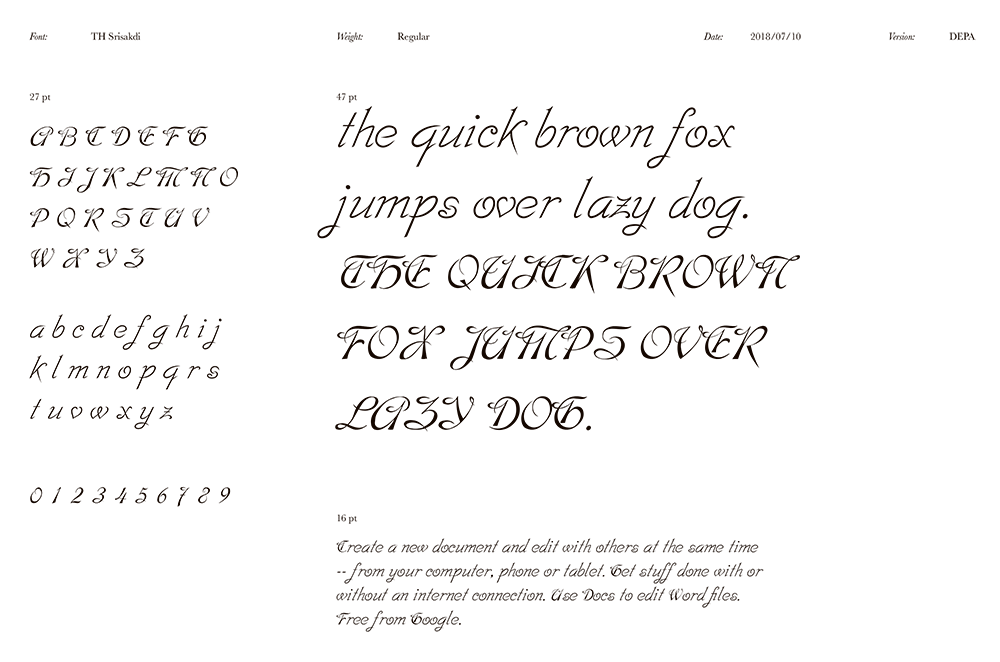 Font: TH Srisakdi Weight: Regular Date: 2018/07/10 Version: DEPA
27 pt
A B C D E F G
H I J K L M N O
P Q R S T U V
W X Y Z
a b c d e f g h i j
k l m n o p q r s
t u v w x y z
0 1 2 3 4 5 6 7 8 9
47 pt
the quick brown fox
jumps over lazy dog.
THE QUICK BROWN
FOX JUMPS OVER
LAZY DOG.
16 pt
Create a new document and edit with others at the same time
-- from your computer, phone or tablet. Get stuff done with or
without an internet connection. Use Docs to edit Word files.
Free from Google.